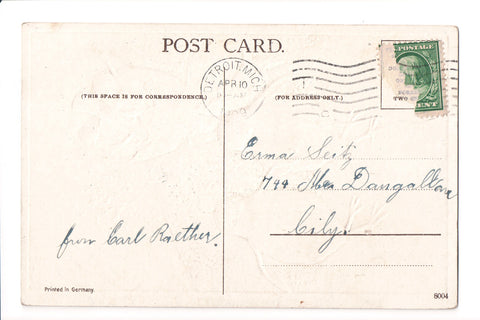 POST CARD.
DETROIT, MICH.
APR 10
POSTAGE
CENT
(THIS SPACE IS FOR CORRESPONDENCE.)
(FOR ADDRESS ONLY.)
TWO
Erma Seitz
744
City.
from Carl Raether.
Printed in Germany.
8004